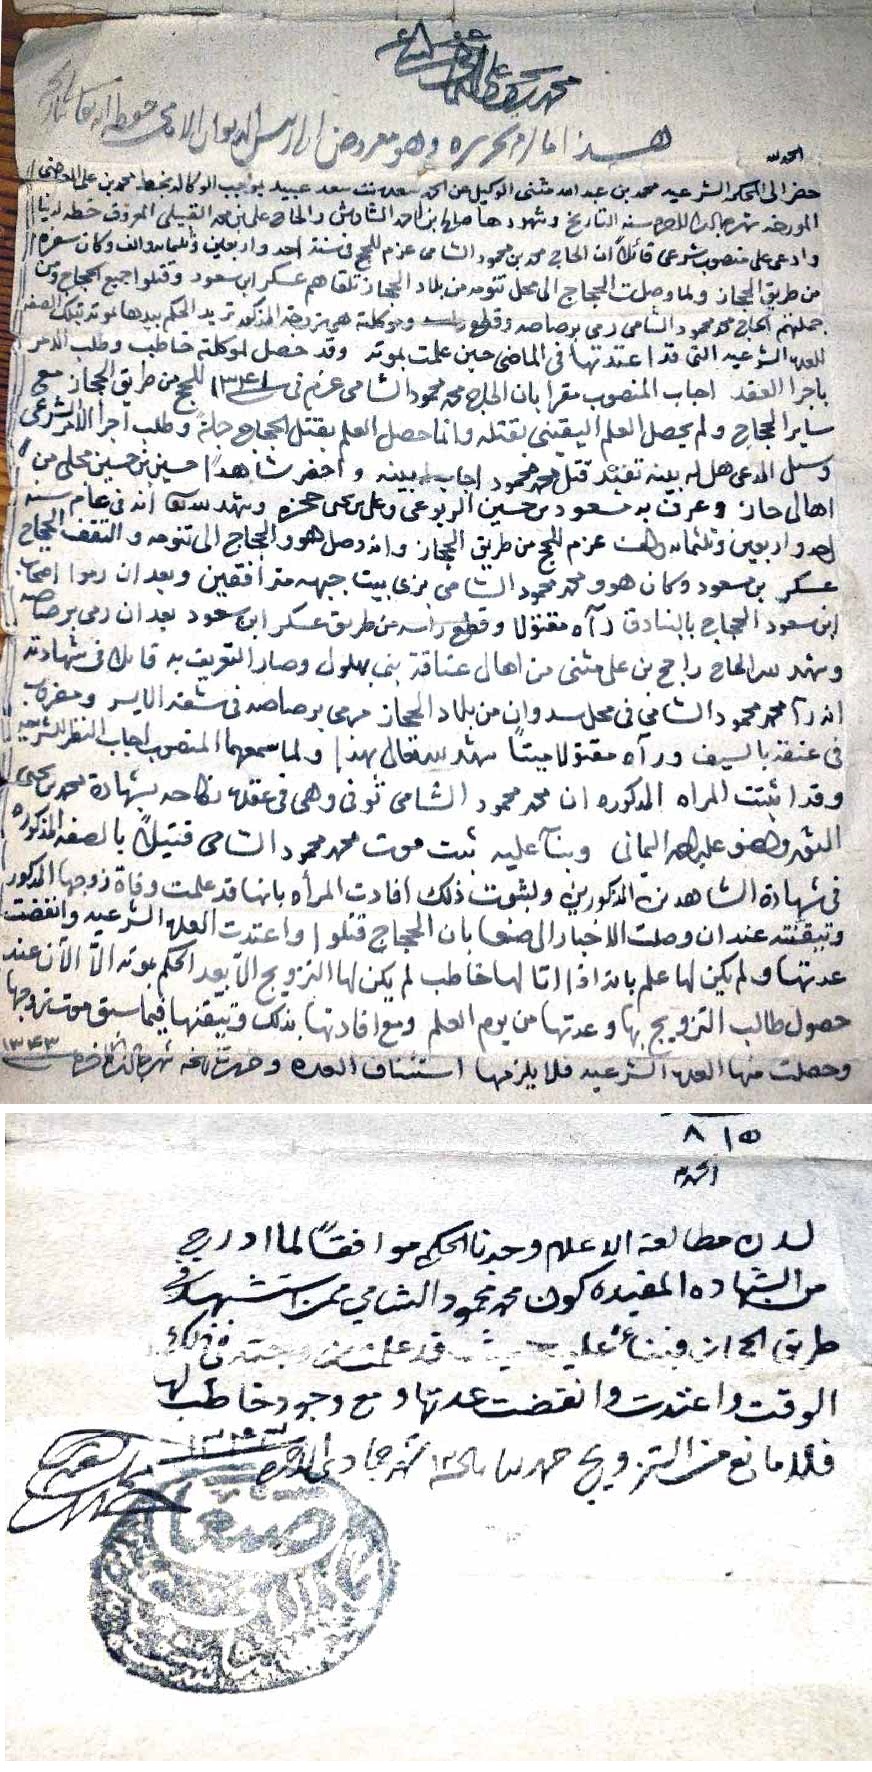 هذا ما لزم تحريره وهو معروض الى رئيس الديوان الامامي حفظه الله تعالى
الحمد لله
حضر الى المحكمة الشرعيه محمد بن عبدالله مثنى الوكيل عن الحره سعد بنت سعد عبيد بموجب الوكاله بخط محمد بن علي
المورخه شهر جماد الاخره سنة التاريخ وشهودها صالح بن احمد الشاوش والحاج علي بن محمد القبيلي المعروف خطه لدينا
وادعى على منصوب شرعي قائلاً ان الحاج محمد بن محمود الشامي عزم للحج في سنة احد واربعين وثلثمايه والف وكان سفره
من طريق الحجاز ولما وصلت الحجاج الى محل تنومه من بلاد الحجاز تلقاهم عسكر ابن سعود وقتلوا جميع الحجاج ومن
جملتهم الحاج محمد محمود الشامي رمي برصاصه وقطع راسه وموكلته هي زوجة المذكور تريد الحكم بيدها بموته بتلك الصفه
للعده الشرعيه التي قد اعتدتها في الماضي حين علمت بموته وقد حصل لموكلته خاطب وطلب الامر
باجرا العقد اجاب المنصوب مقرا بان الحاج محمد محمود الشامي عزم في سنة ١٣٤١ للحج من طريق الحجاز مع
ساير الحجاج ولم يحصل العلم اليقيني بقتله وانما حصل العلم بقتل الحجاج جملةً وطلب اجرا الامر الشرعي
وسئل المدعي هل له بينه تفيد قتل محمد محمود اجاب له بينه واحضر شاهداً حسين بن حسين محلي من
اهالي حاز وعرف به مسعود بن حسين الربوعي وعلي بن يحي حجزه وشهد لله تعا انه في عام سنه
احد واربعين وثلثمايه والف عزم للحج من طريق الحجاز وانه وصل هو والحجاج الى تنومه والتقف الحجاج
عسكر بن سعود وكان هو ومحمد محمود الشامي مترافقين وبعد ان رموا اصحاب
ابن سعود الحجاج بالبنادق رآه مقتولا وقطع راسه من طريق عسكر ابن سعود بعد ان رمي برصاصه
وشهد لله الحاج راجح بن علي مثنى من اهال عناقة بني بهلول وصار التعريف به قائلا في شهادته
انه رآ محمد محمود الشامي في محل سدوان من بلاد الحجاز مرمي برصاصه في شقه الايسر ومضروب
في عنقه بالسيف ورآه مقتولا ميتاً شهد لله تعالى بهذا ولما سمعهما المنصوب اجاب النظر للشرع
وقد اثبتت المراه المذكوره ان محمد محمود الشامي توفي وهي في عقدة نكاحه بشهادة محمد بن يحي
وبنآ عليه ثبت موت محمد محمود الشامي قتيلاً بالصفه المذكوره
في شهادة الشاهدين المذكورين ولثبوت ذلك افادت المرأه بانها قد علمت وفاة زوجها المذكور
وتيقنته عند ان وصلت الاخبار الى صنعا بان الحجاج قتلوا واعتدت العده الشرعيه وانقضت
عدتها ولم يكن لها علم بانه اذا اتا لها خاطب لم يكن لها التزويج الاّ بعد الحكم بموته الاّ الآن عند
حصول طالب التزويج بها وعدتها من يوم العلم ومع افادتها بذلك وتيقنها فيما سبق موت زوجها
وحصلت منها العده الشرعيه فلا يلزمها استئناف العده وحرر بتاريخه شهر جماد الاخره سنة ١٣٤٣
٨١٥
الحمد لله
لدى مطالعة الاعلام وجدنا الحكم موافقاً لما ادرج
من الشهاده المفيده كون محمد محمود الشامي ممن استشهد في
طريق الحجاز وبناءً عليه حيث قد علمت زوجته في ذلك
الوقت واعتدت وانقضت عدتها ومع وجود خاطب لها
فلا مانع من التزويج حرر بتاريخه ١٣ شهر جمادى الاخره ١٣٤٣
صنعا